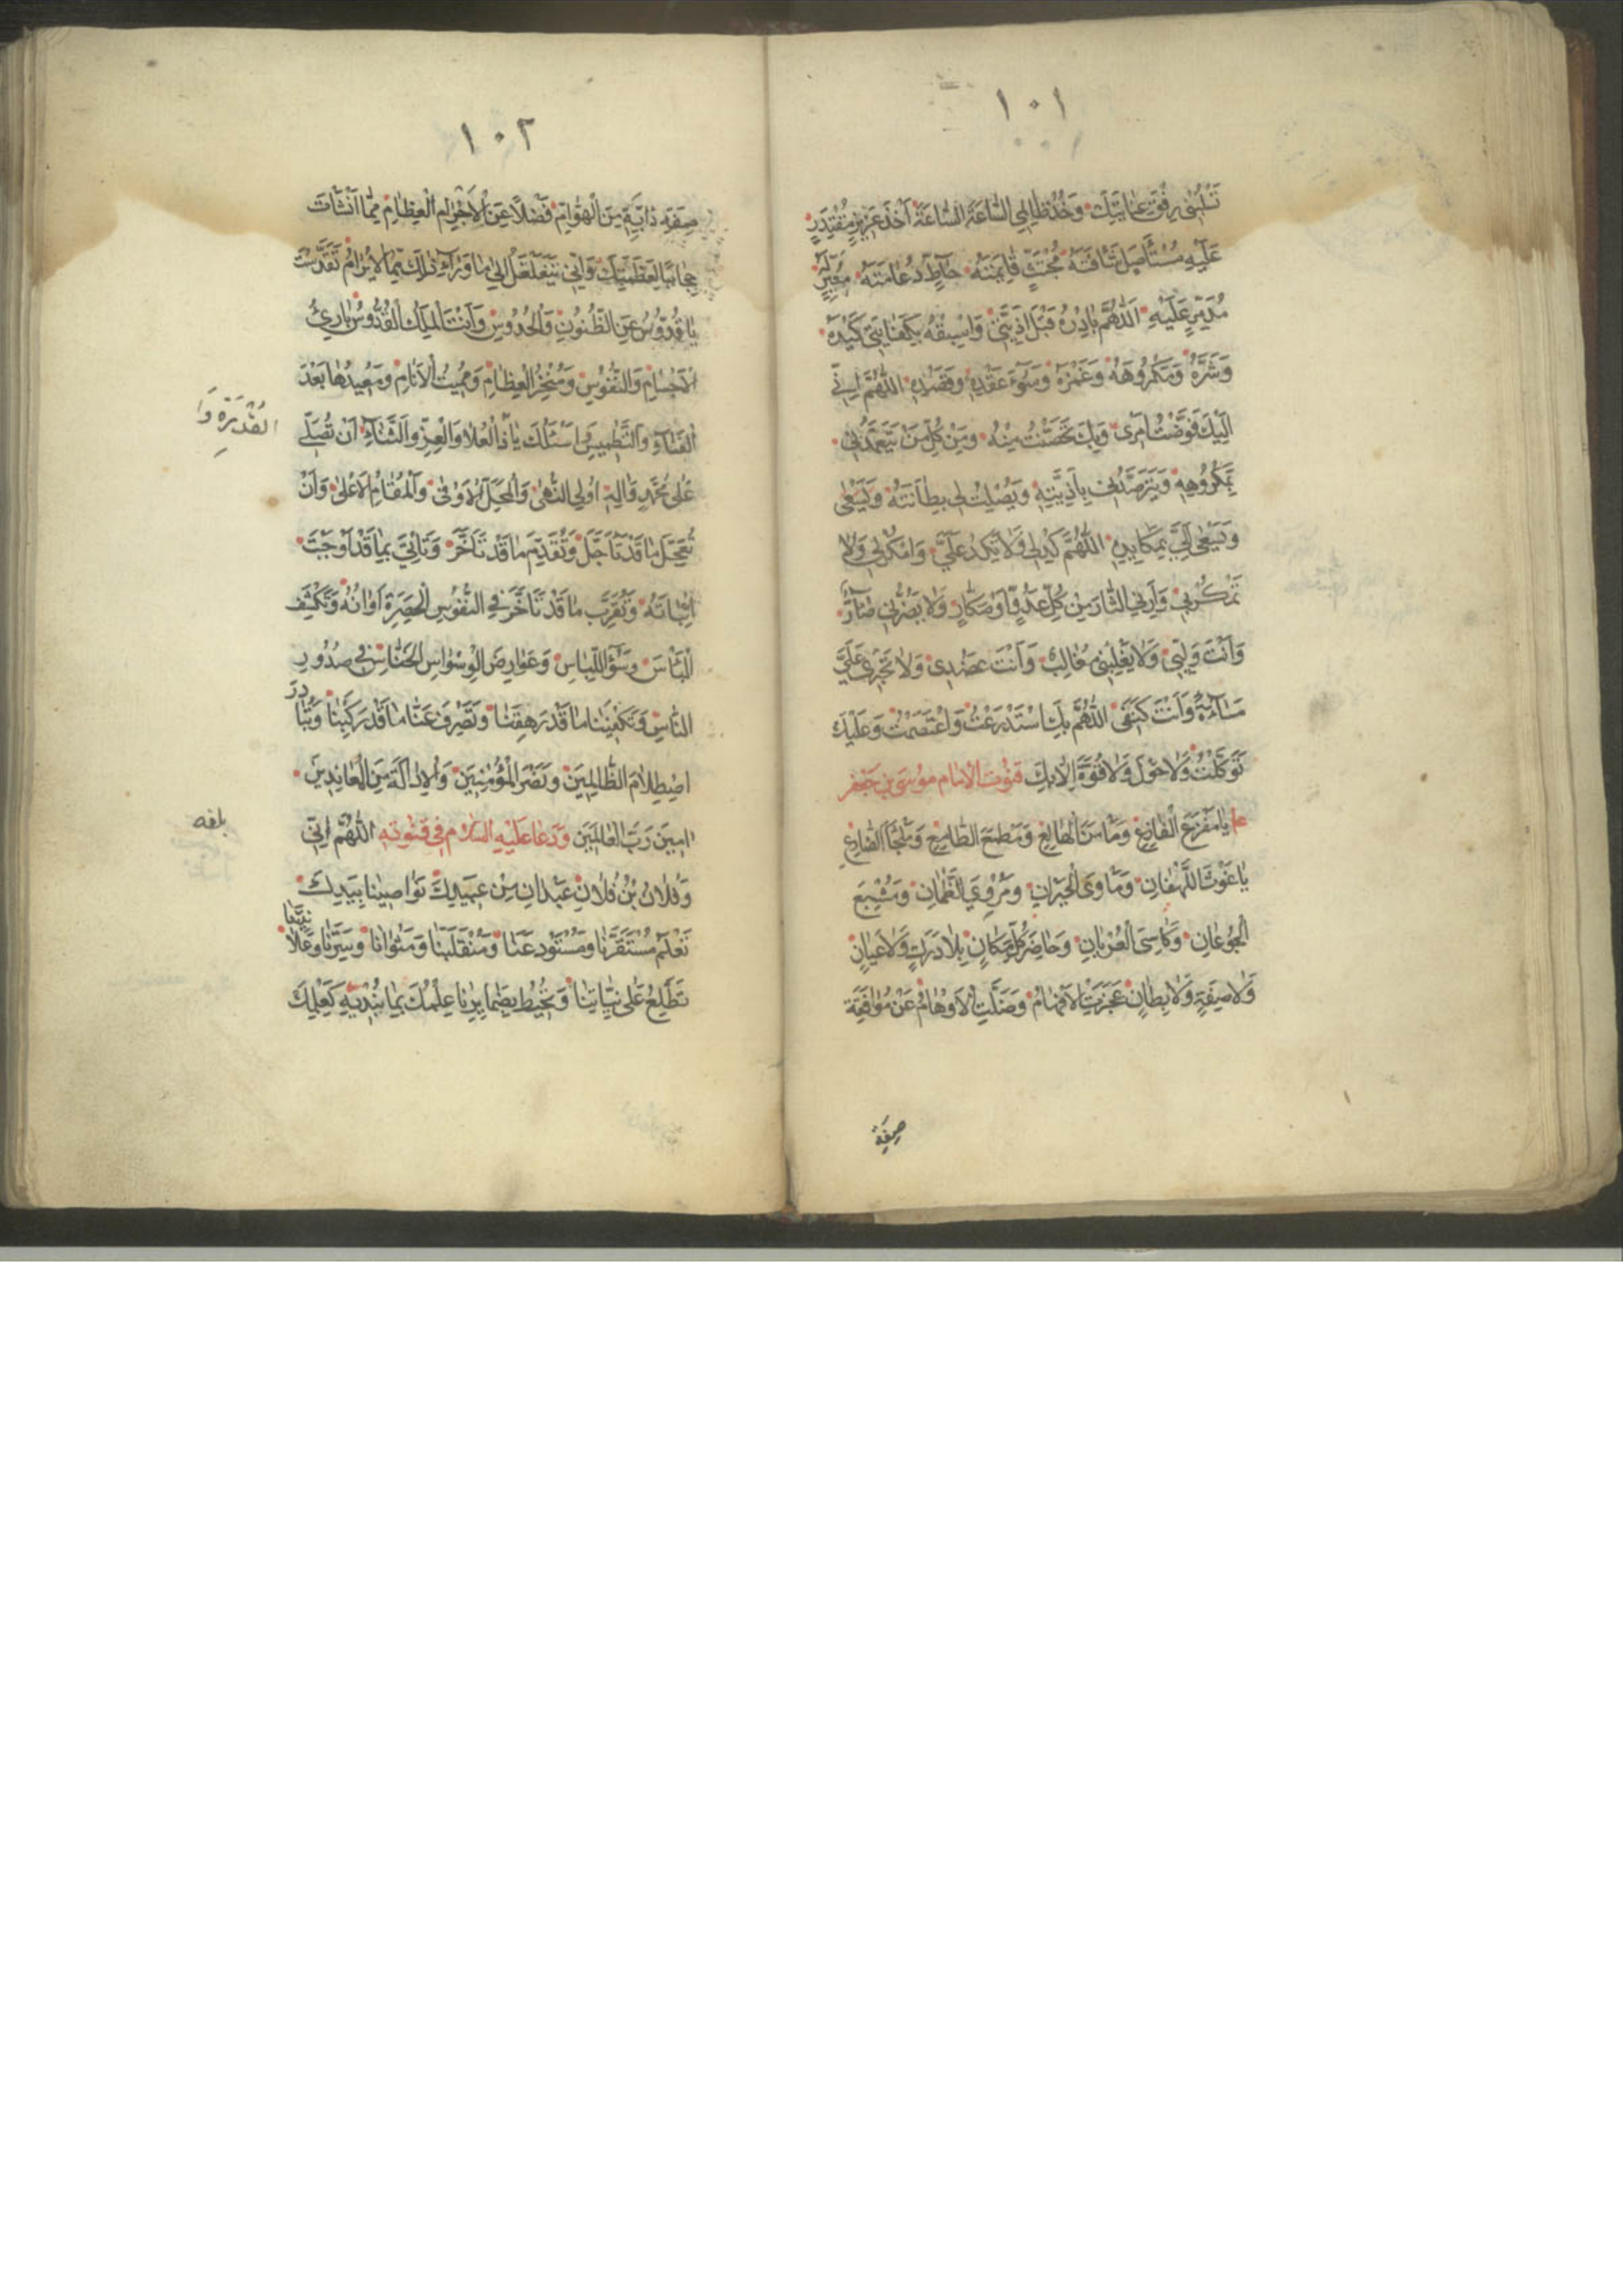 ١٠١
عنايتك وخذ ظالمي الساعة الساعة أخذ عزيز مقتدر
عليه مستأصل شأفته مجتث قائمته حاط دعامته
مدمر عليه اللهم بادره قبل اذيتي واسبقه بكفايتي كيده
وشره ومكروهه وغمزه وسوء عقده وقصده اللهم اني
اليك فوضت امري وبك تحصنت منه ومن كل من يتعمدني
بمكروهه ويترصدني باذيته ويصلت لي بطانته ويسعى
ويسعى الي بمكايده اللهم كد لي ولا تكد علي وامكر لي ولا
تمكر بي وأرني الثار من كل عدو او مكار ولا يضرني ضار
وانت وليي ولا يغلبني مغالب وانت عضدي ولا تجري علي
مساءة وانت كنفي اللهم بك استدرعت واعتصمت وعليك
توكلت ولا حول ولا قوة الا بك قنوت الامام موسى بن جعفر
يا مفزع الفازع ومأمن الهالع ومطمع الطامع وملجأ الضارع
يا غوث اللهفان ومأوى الحيران ومروي الظمان ومشبع
الجوعان وكاسي العريان وحاضر كل مكان بلا درك ولا عيان
ولا صفة ولا بطان عجزت الافهام وضلت الاوهام عن موافقة
صفة
١٠٢
صفة دابة من الهوام فضلا عن الاجرام العظام مما انشأت
حجابا لعظمتك وانى يتغلغل الى ما وراء ذلك بما لا يرام تقدست
يا قدوس عن الظنون والحدوس وانت الملك القدوس بارئ
الاجسام والنفوس ومنخر العظام ومميت الانام ومعيدها بعد
الفناء والتطميس اسئلك يا ذا العلا والعز والثناء ان تصلي
القدرة وا
على محمد واله اولي النهى والمحل الاوفى والمقام الاعلى وان
تعجل ما قد تأجل وتقدم ما قد تأخر وتأتي بما قد اوجبت
اتيانه وتقرب ما قد تأخر في النفوس الحصرة اوانه وتكشف
البأس وسوء اللباس وعوارض الوسواس الخناس في صدور
الناس وتكفينا ما قد رهقنا وتصرف عنا ما قد ركبنا وتبادر
اصطلام الظالمين ونصر المؤمنين والادالة من المعاندين
امين رب العالمين ودعا عليه السلام في قنوته اللهم اني
وفلان بن فلان عبدان من عبيدك نواصينا بيدك
تعلم مستقرنا ومستودعنا ومنقلبنا ومثوانا وسرنا وعلانيتنا
تطلع على نياتنا وتحيط بضمايرنا علمك بما نبديه كعلمك